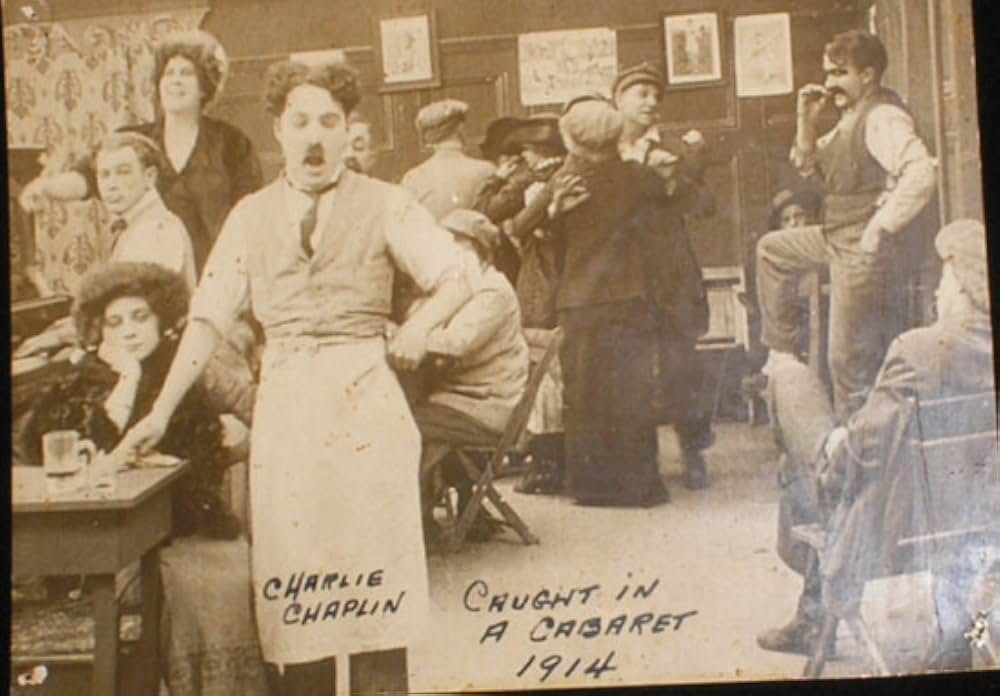 CHARLIE
CHAPLIN
CAUGHT in
A CABARET
1914